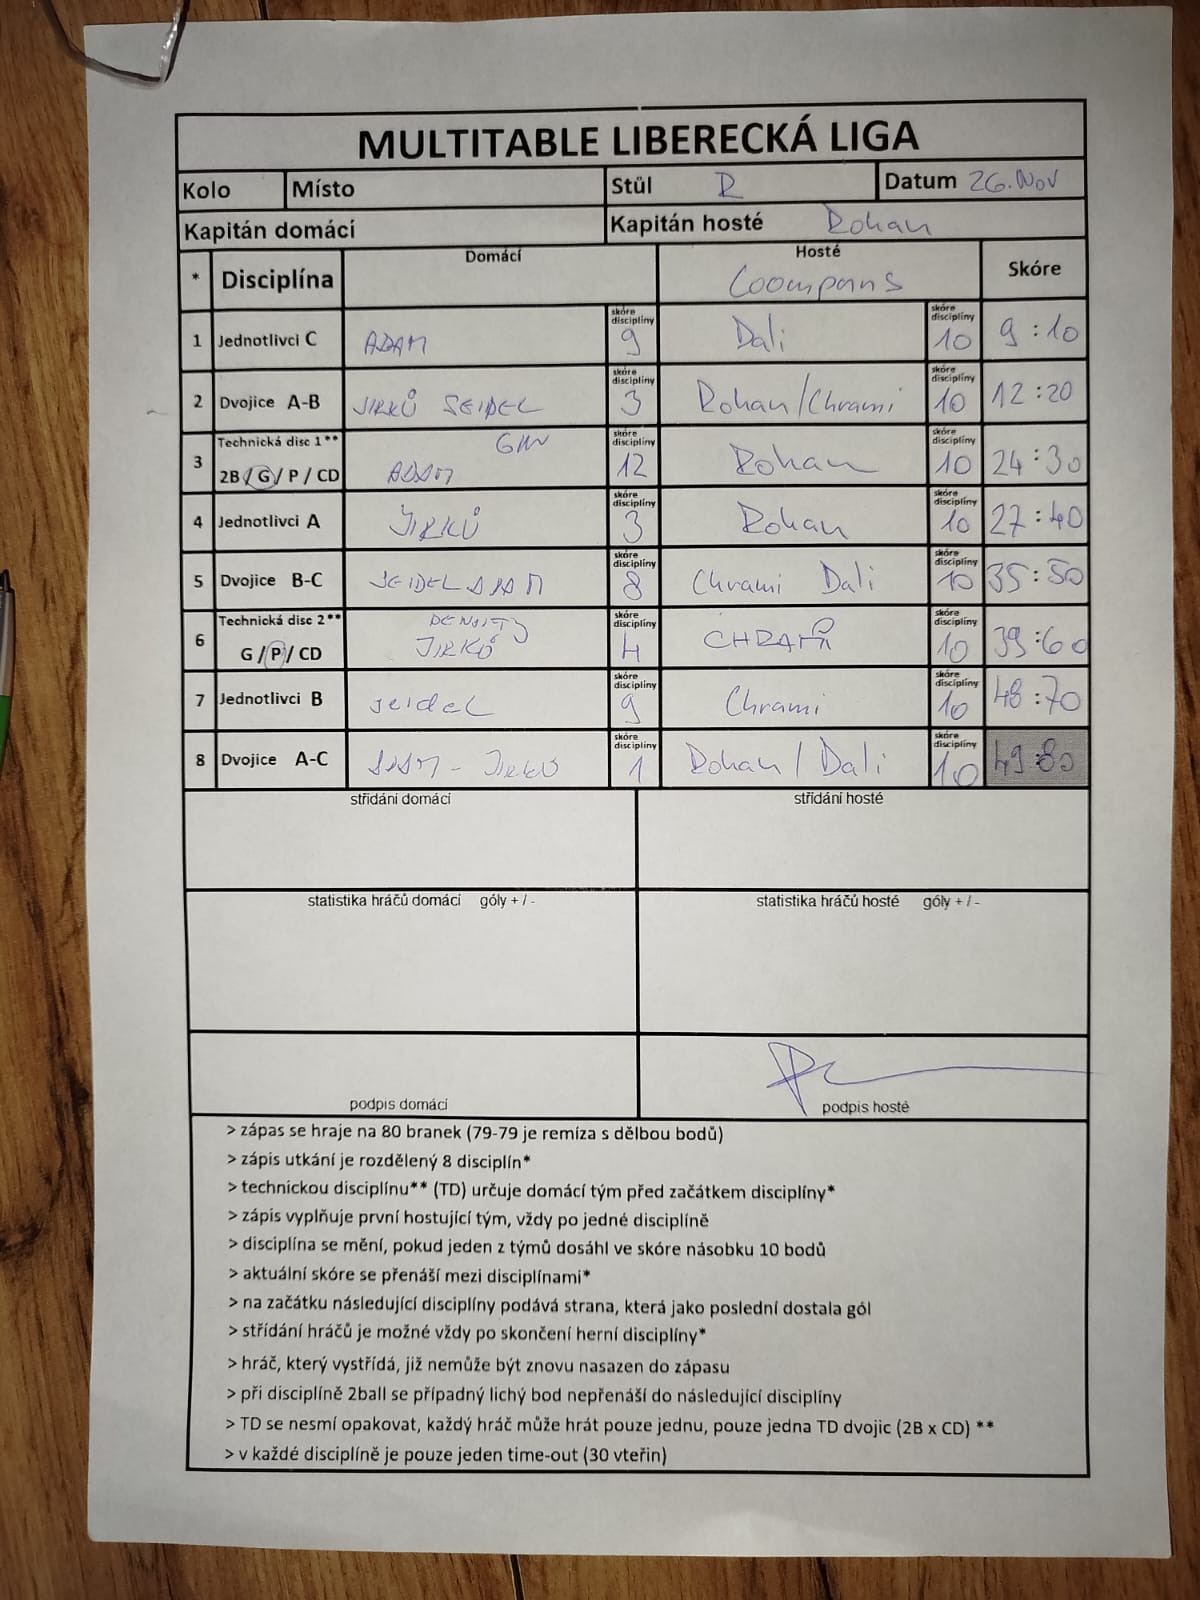 MULTITABLE LIBERECKÁ LIGA
Kolo Místo Stůl R Datum 26. Nov
Kapitán domácí Kapitán hosté Rohan
* Disciplína Domácí Hosté Coompans Skóre
1 Jednotlivci C ADAM skóre disciplíny 9 Dali skóre disciplíny 10 9:10
2 Dvojice A-B JIRKŮ SEIDEL skóre disciplíny 3 Rohan/Chrami skóre disciplíny 10 12:20
3 Technická disc 1** 2B / G / P / CD ADAM skóre disciplíny 12 Rohan skóre disciplíny 10 24:30
4 Jednotlivci A JIRKŮ skóre disciplíny 3 Rohan skóre disciplíny 10 27:40
5 Dvojice B-C SEIDEL ADAM skóre disciplíny 8 Chrami Dali skóre disciplíny 10 35:50
6 Technická disc 2** G / P / CD JIRKŮ skóre disciplíny 4 CHRAMI skóre disciplíny 10 39:60
7 Jednotlivci B Seidel skóre disciplíny 9 Chrami skóre disciplíny 10 48:70
8 Dvojice A-C ADAM - JIRKŮ skóre disciplíny 1 Rohan / Dali skóre disciplíny 10 49:80
střídání domácí střídání hosté
statistika hráčů domácí góly + / - statistika hráčů hosté góly + / -
podpis domácí podpis hosté
> zápas se hraje na 80 branek (79-79 je remíza s dělbou bodů)
> zápis utkání je rozdělený 8 disciplín*
> technickou disciplínu** (TD) určuje domácí tým před začátkem disciplíny*
> zápis vyplňuje první hostující tým, vždy po jedné disciplíně
> disciplína se mění, pokud jeden z týmů dosáhl ve skóre násobku 10 bodů
> aktuální skóre se přenáší mezi disciplínami*
> na začátku následující disciplíny podává strana, která jako poslední dostala gól
> střídání hráčů je možné vždy po skončení herní disciplíny*
> hráč, který vystřídá, již nemůže být znovu nasazen do zápasu
> při disciplíně 2ball se případný lichý bod nepřenáší do následující disciplíny
> TD se nesmí opakovat, každý hráč může hrát pouze jednu, pouze jedna TD dvojic (2B x CD) **
> v každé disciplíně je pouze jeden time-out (30 vteřin)